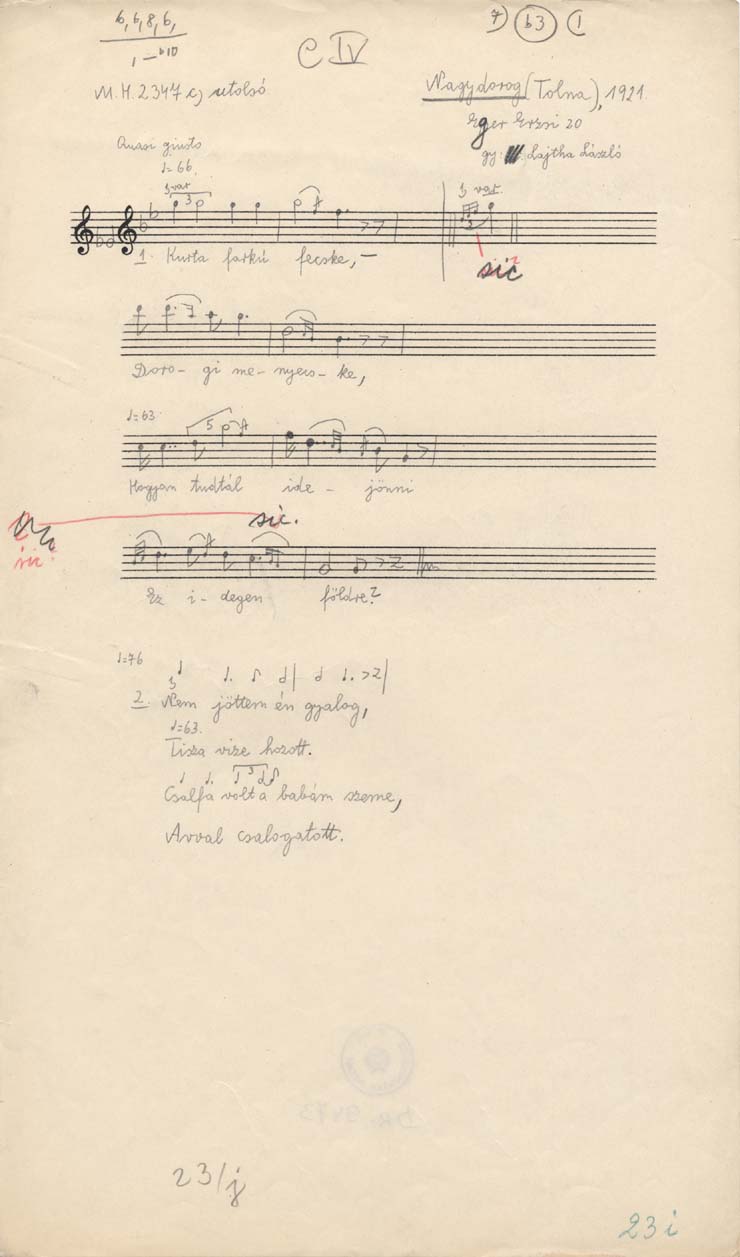 6, 6, 8, 6,
1 — b10
C IV
7) b3 (1
M. H. 2347 c) utolsó
Nagydorog (Tolna), 1921.
Eger Erzsi 20
gy: Lajtha László
Quasi giusto
♩= 66.
var
3
var.
sic
1. Kurta farkú fecske, —
Doro- gi me- nyecs- ke,
♩= 63.
5
Hogyan tudtál ide- jönni
sic.
sic?
Ez i- degen földre?
♩=76
2. Nem jöttem én gyalog,
♩=63.
Tisza vize hozott.
3
Csalfa volt a babám szeme,
Avval csalogatott.
23/j
23 i